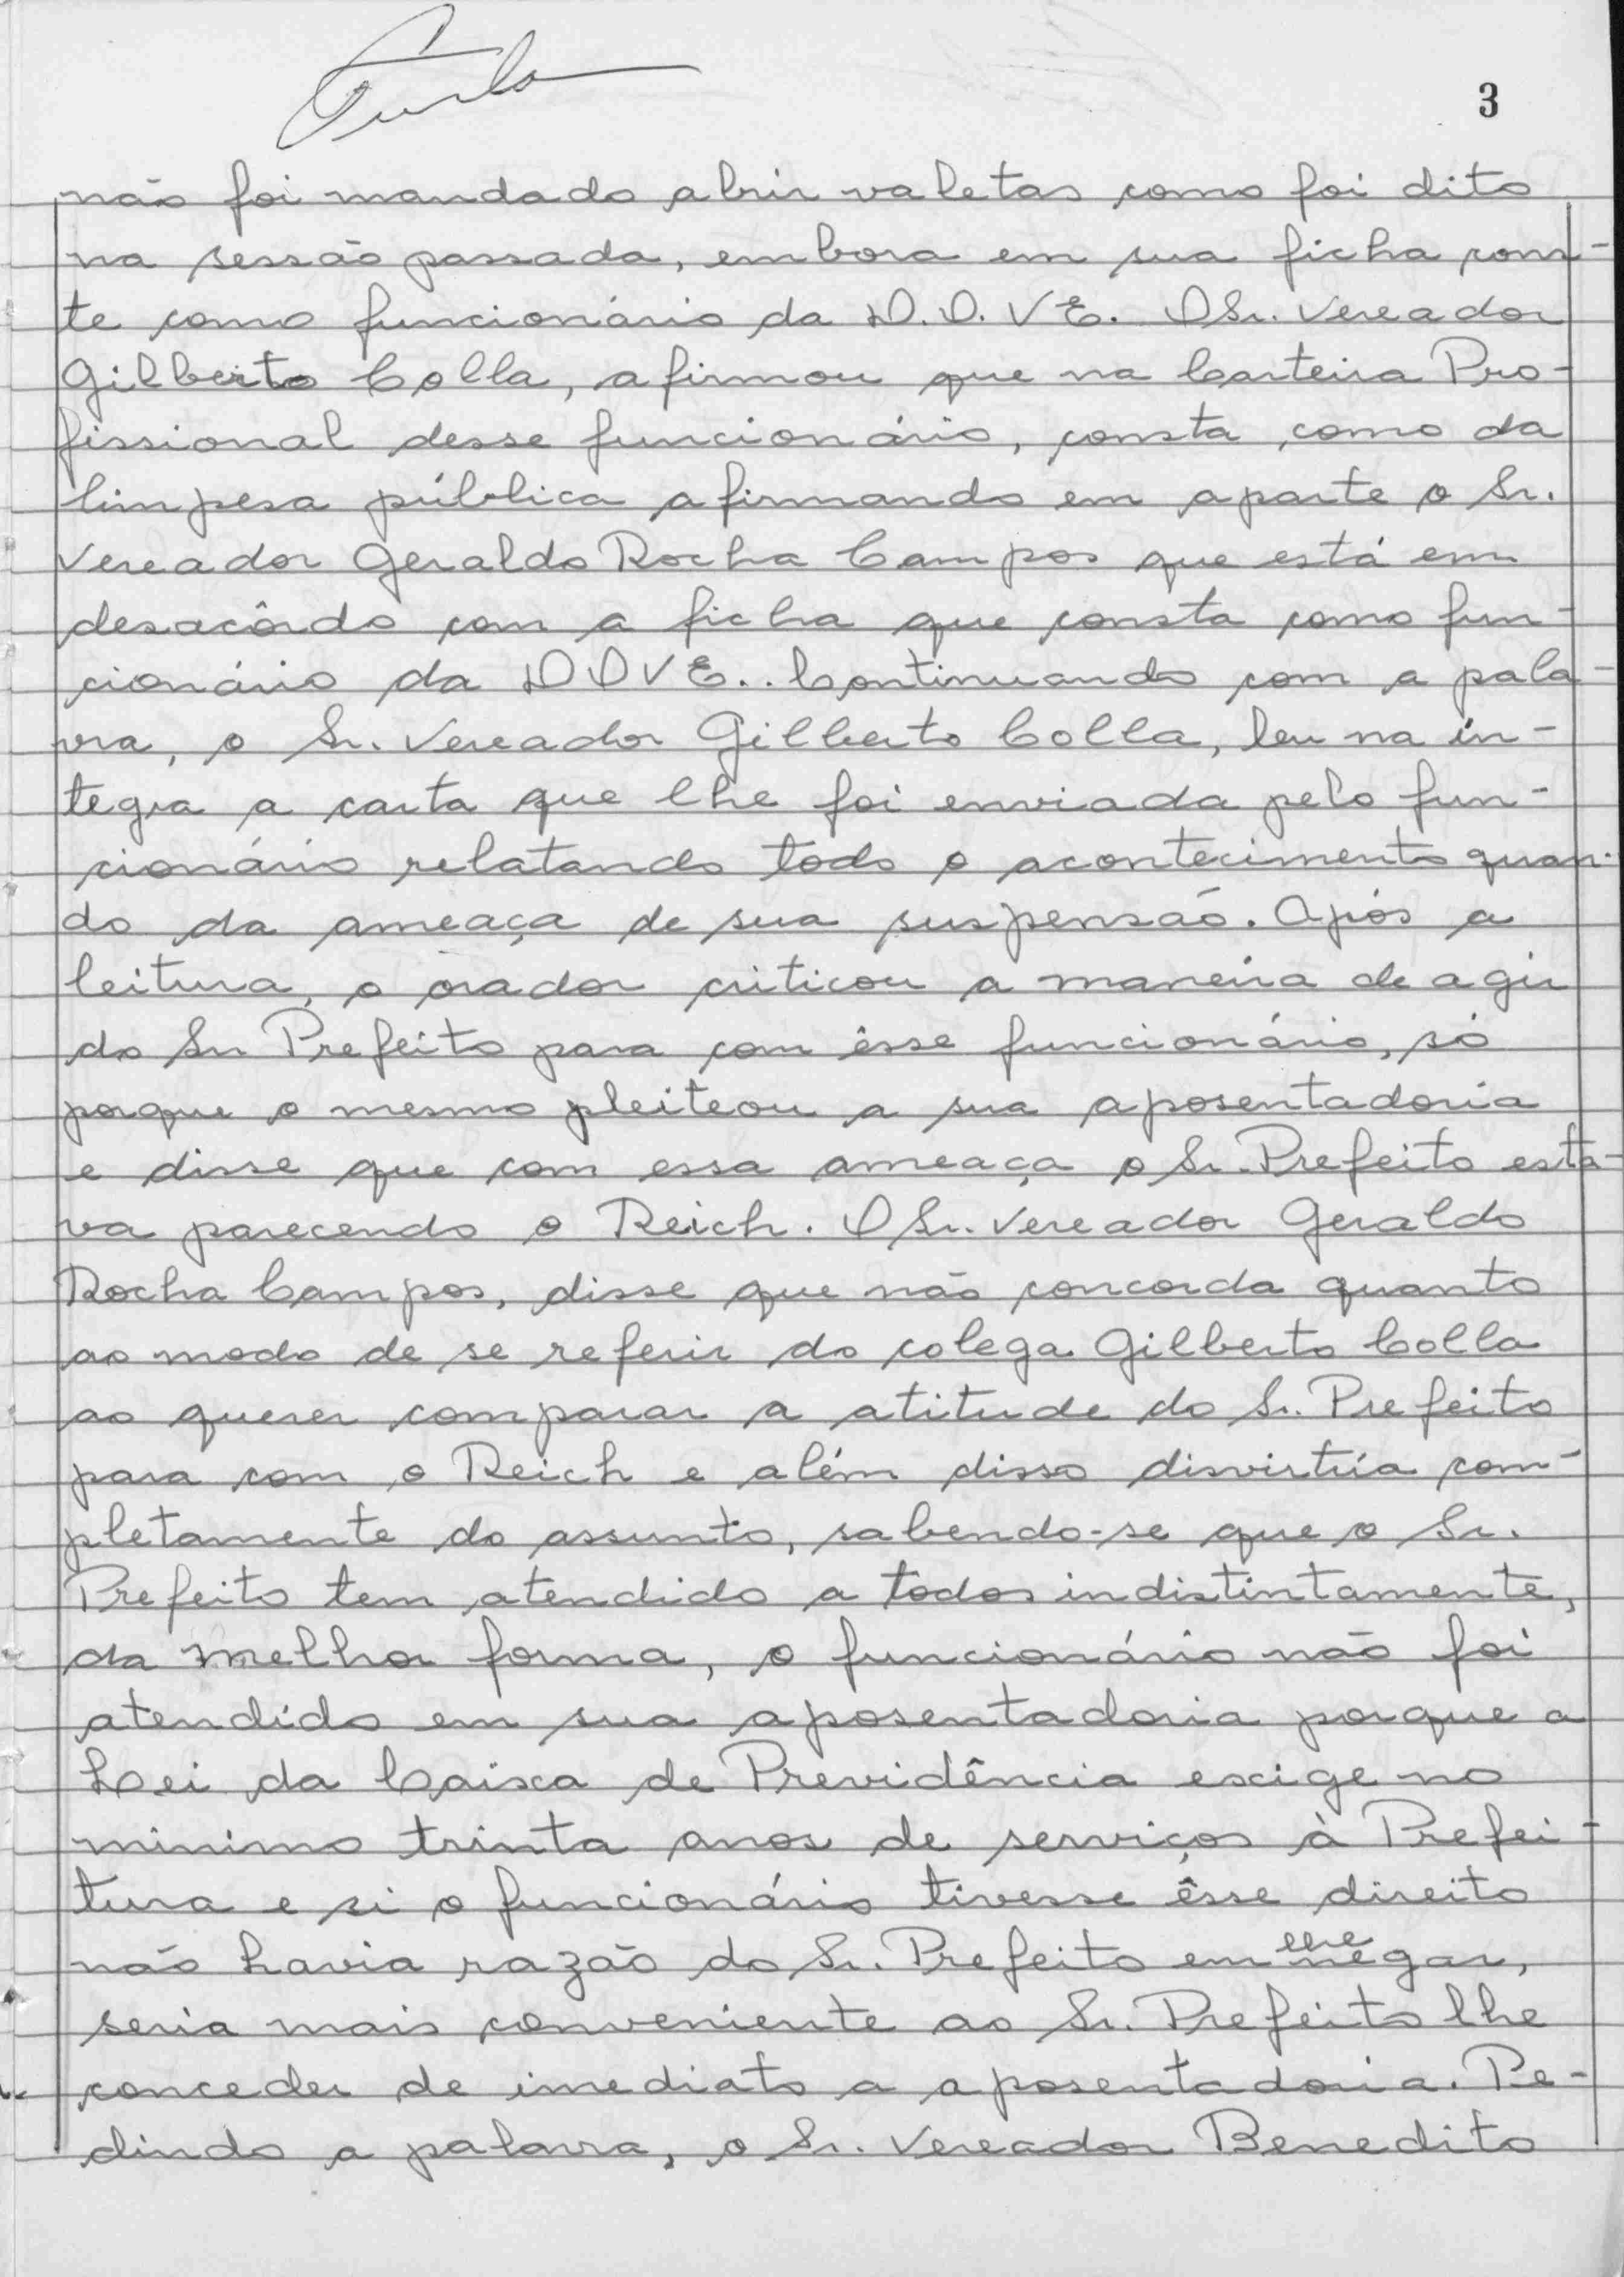 3
não foi mandado abrir valetas como foi dito
na sessão passada, embora em sua ficha cons-
te como funcionário da D.O.V.E. O Sr. Vereador
Gilberto Colla, afirmou que na Carteira Pro-
fissional desse funcionário, consta como da
limpesa pública afirmando em aparte o Sr.
Vereador Geraldo Rocha Campos que está em
desacôrdo com a ficha que consta como fun-
cionário da DOVE.. Continuando com a pala-
vra, o Sr. Vereador Gilberto Colla, leu na ín-
tegra a carta que lhe foi enviada pelo fun-
cionário relatando todo o acontecimento quan-
do da ameaça de sua suspensão. Após a
leitura, o orador criticou a maneira de agir
do Sr Prefeito para com êsse funcionário, só
porque o mesmo pleiteou a sua aposentadoria
e disse que com essa ameaça o Sr. Prefeito esta-
va parecendo o Reich. O Sr. Vereador Geraldo
Rocha Campos, disse que não concorda quanto
ao modo de se referir do colega Gilberto Colla
ao querer comparar a atitude do Sr. Prefeito
para com o Reich e além disso disvirtúa com-
pletamente do assunto, sabendo-se que o Sr.
Prefeito tem atendido a todos indistintamente,
da melhor forma, o funcionário não foi
atendido em sua aposentadoria porque a
Lei da Caixa de Previdência exige no
minimo trinta anos de serviços à Prefei-
tura e si o funcionário tivesse êsse direito
não havia razão do Sr. Prefeito em lhe negar,
seria mais conveniente ao Sr. Prefeito lhe
conceder de imediato a aposentadoria. Pe-
dindo a palavra, o Sr. Vereador Benedito